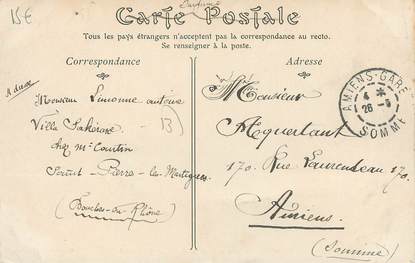 15€
Parfumé
Carte Postale
Tous les pays étrangers n'acceptent pas la correspondance au recto.
Se renseigner à la poste.
Correspondance
Monsieur Limonne antoine
Villa
chez Mr Courtin
Saint-Pierre-les-Martigues
(Bouches-du-Rhône)
Adresse
Monsieur
170. Rue Laurendeau 170.
Amiens.
(Somme)
AMIENS-GARE
4 *
26 -5
SOMME